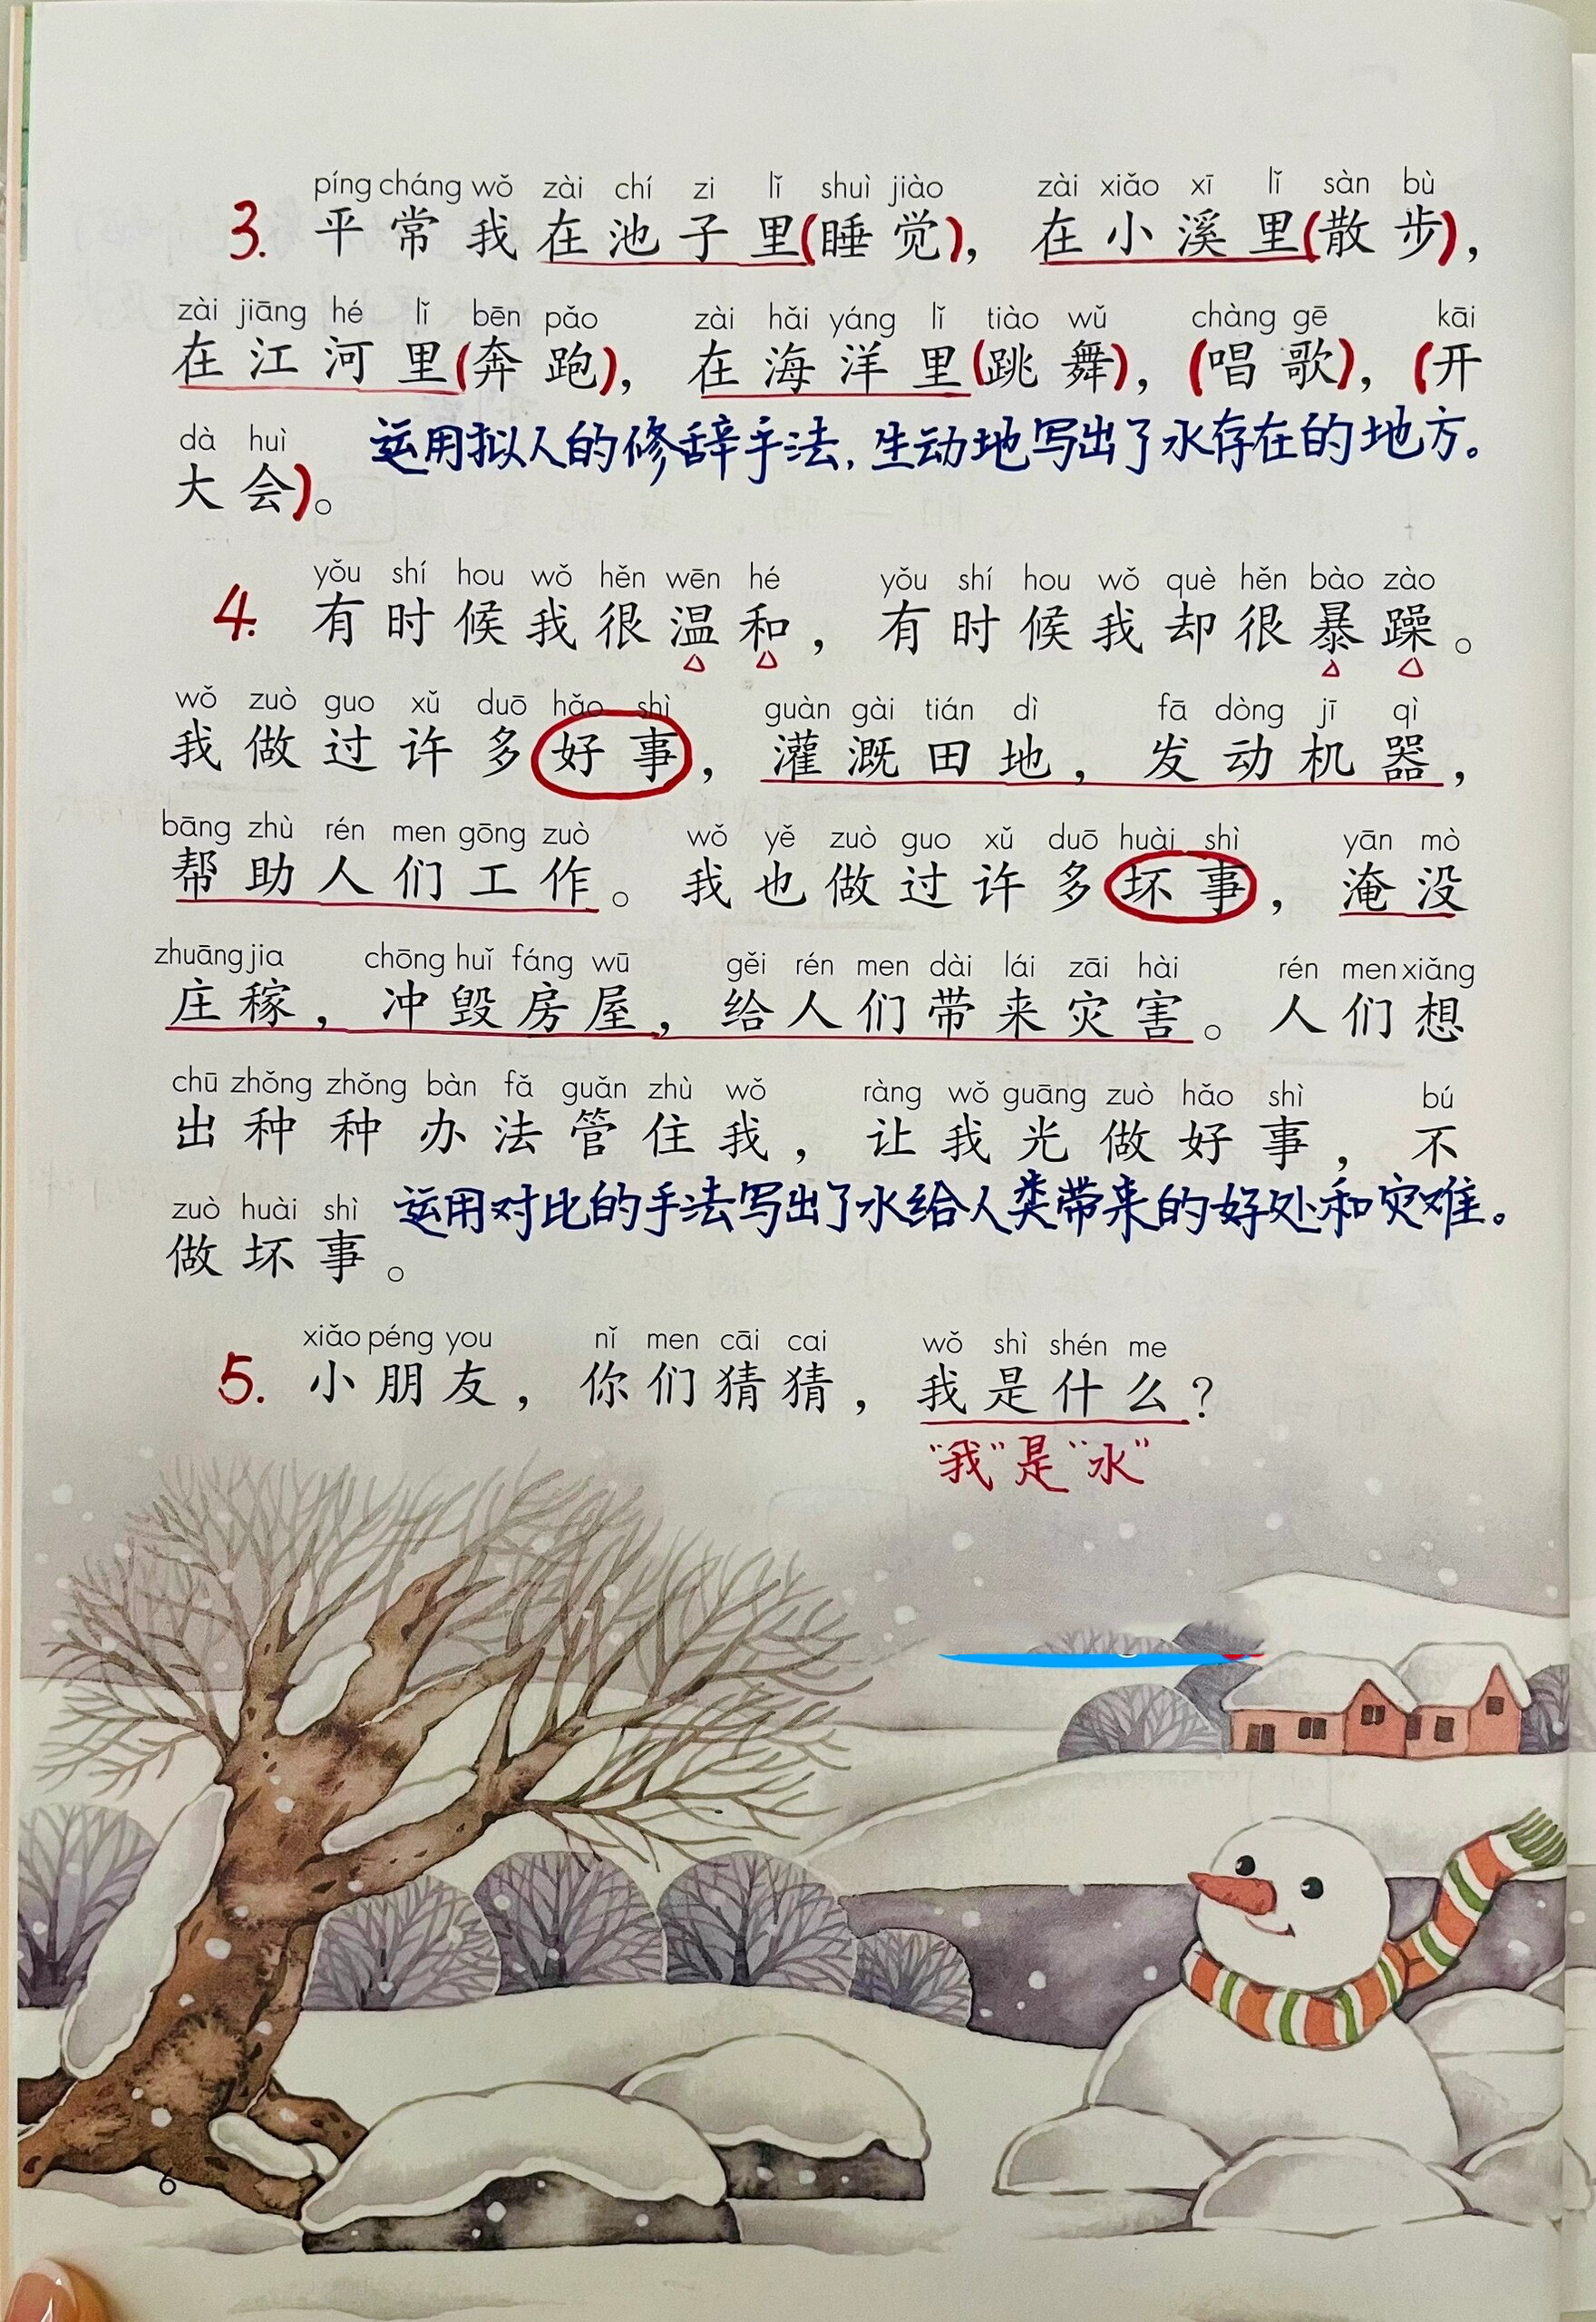 píng cháng wǒ zài chí zi lǐ shuì jiào zài xiǎo xī lǐ sàn bù
3. 平常我在池子里(睡觉)，在小溪里(散步)，
zài jiāng hé lǐ bēn pǎo zài hǎi yáng lǐ tiào wǔ chàng gē kāi
在江河里(奔跑)，在海洋里(跳舞)，(唱歌)，(开
dà huì
大会)。
运用拟人的修辞手法,生动地写出了水存在的地方。
yǒu shí hou wǒ hěn wēn hé yǒu shí hou wǒ què hěn bào zào
4. 有时候我很温和，有时候我却很暴躁。
wǒ zuò guo xǔ duō hǎo shì guàn gài tián dì fā dòng jī qì
我做过许多好事，灌溉田地，发动机器，
bāng zhù rén men gōng zuò wǒ yě zuò guo xǔ duō huài shì yān mò
帮助人们工作。我也做过许多坏事，淹没
zhuāng jia chōng huǐ fáng wū gěi rén men dài lái zāi hài rén men xiǎng
庄稼，冲毁房屋，给人们带来灾害。人们想
chū zhǒng zhǒng bàn fǎ guǎn zhù wǒ ràng wǒ guāng zuò hǎo shì bú
出种种办法管住我，让我光做好事，不
zuò huài shì
做坏事。
运用对比的手法写出了水给人类带来的好处和灾难。
xiǎo péng you nǐ men cāi cai wǒ shì shén me
5. 小朋友，你们猜猜，我是什么？
“我”是“水”
6